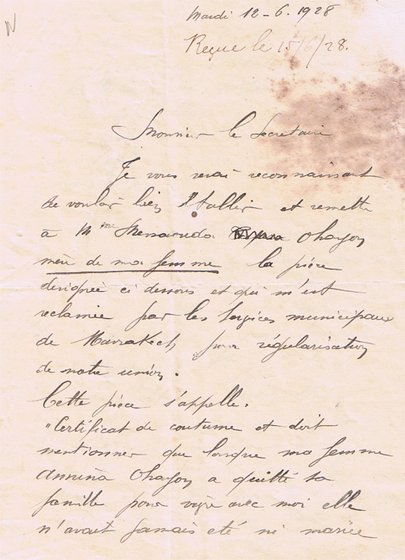 Mardi 12-6.1928
Reçue le 15/6/28.
Monsieur le Secretaire
Je vous serai reconnaissant
de vouloir bien etablir et remettre
à Mme Messaouda Ohayon
mere de ma femme la pièce
designée ci dessous et qui m'est
reclamée par les services municipaux
de Marrakech pour regularisation
de notre union.
Cette pièce s'appelle.
"Certificat de coutume et doit
mentionner que lorsque ma femme
Ohayon a quitté sa
famille pour vivre avec moi elle
n'avait jamais eté ni mariée